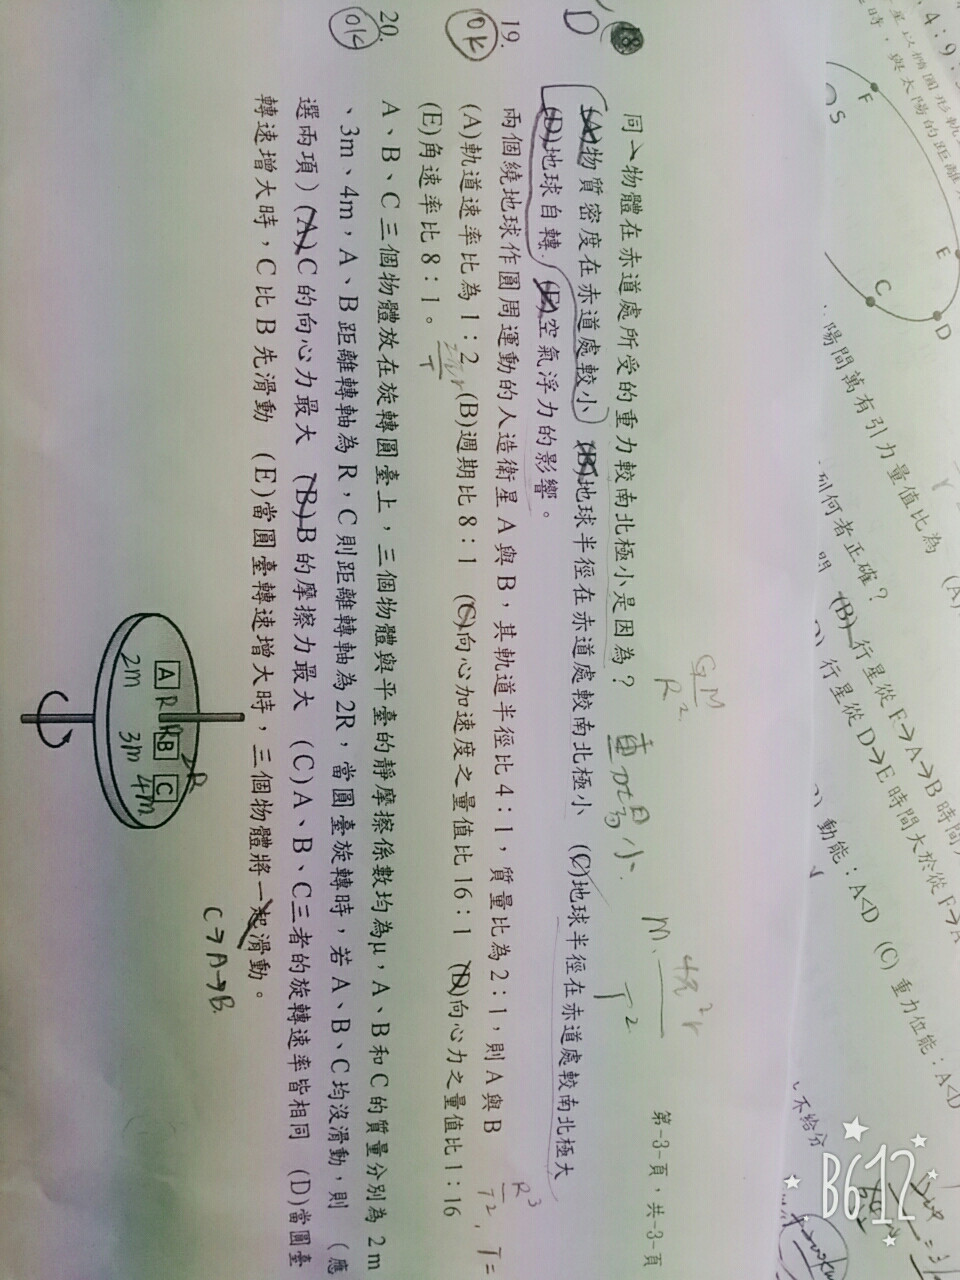 第-3-頁，共-3-頁
18.
D
同一物體在赤道處所受的重力較南北極小是因為？ 重力場小.
(A)物質密度在赤道處較小 (B)地球半徑在赤道處較南北極小 (C)地球半徑在赤道處較南北極大
(D)地球自轉 (E)空氣浮力的影響。
GM
R²
M.
4π²r
T²
19.
OK
兩個繞地球作圓周運動的人造衛星 A 與 B，其軌道半徑比 4：1，質量比為 2：1，則 A 與 B
(A)軌道速率比為 1：2 (B)週期比 8：1 (C)向心加速度之量值比 16：1 (D)向心力之量值比 1：16
(E)角速率比 8：1。
2πr
T
R³
T²
, T=
20.
OK
A、B、C 三個物體放在旋轉圓臺上，三個物體與平臺的靜摩擦係數均為μ，A、B 和 C 的質量分別為 2m
、3m、4m，A、B 距離轉軸為 R，C 則距離轉軸為 2R，當圓臺旋轉時，若 A、B、C 均沒滑動，則 (應
選兩項) (A)C 的向心力最大 (B)B 的摩擦力最大 (C)A、B、C三者的旋轉速率皆相同 (D)當圓臺
轉速增大時，C 比 B 先滑動 (E)當圓臺轉速增大時，三個物體將一起滑動。
C→A→B.
A R R B C
2R
2m 3m 4m
4：9：
時，與太陽的距離
F
S
E
D
C
陽間萬有引力量值比為 (A)
列何者正確？
(B) 行星從 F→A→B 時間
行星從 D→E 時間大於從 F→A
動能：A<D (C) 重力位能：A<D
不給分
B612